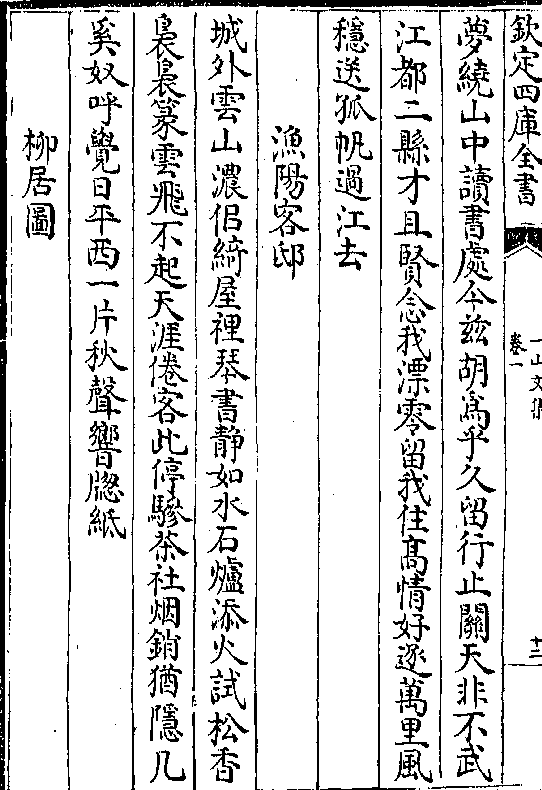 欽定四庫全書
一山文集
卷一
十二
夢繞山中讀書處今兹胡為乎久留行止關天非不武
江都二縣才且賢念我漂零留我住髙情好逐萬里風
穩送孤帆過江去
漁陽客邸
城外雲山濃侣綺屋裡琴書静如水石爐添火試松香
裊裊篆雲飛不起天涯倦客此停驂茶社烟銷猶隱几
奚奴呼覺日平西一片秋聲響牕紙
柳居圖